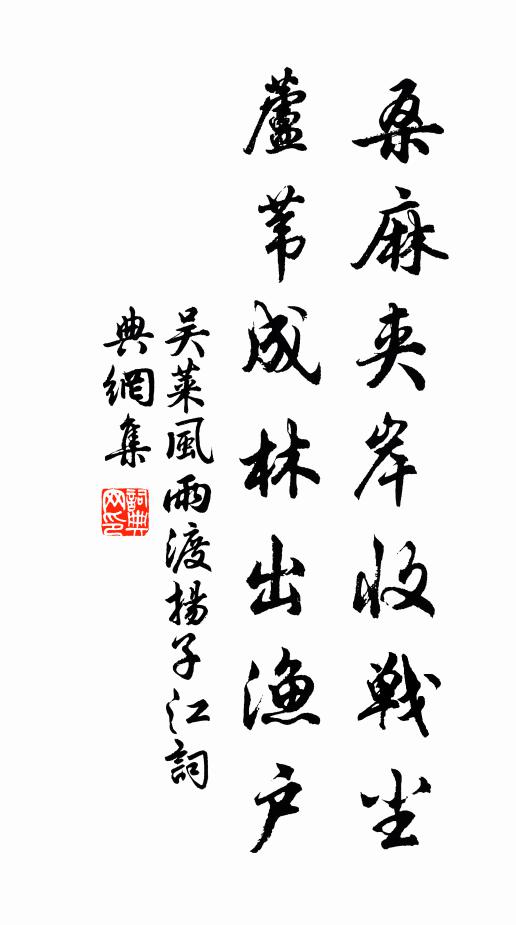 桑麻夾岸收戰尘
蘆葦成林出漁户
吴萊風雨渡揚子江詞
典網集
詞典網印